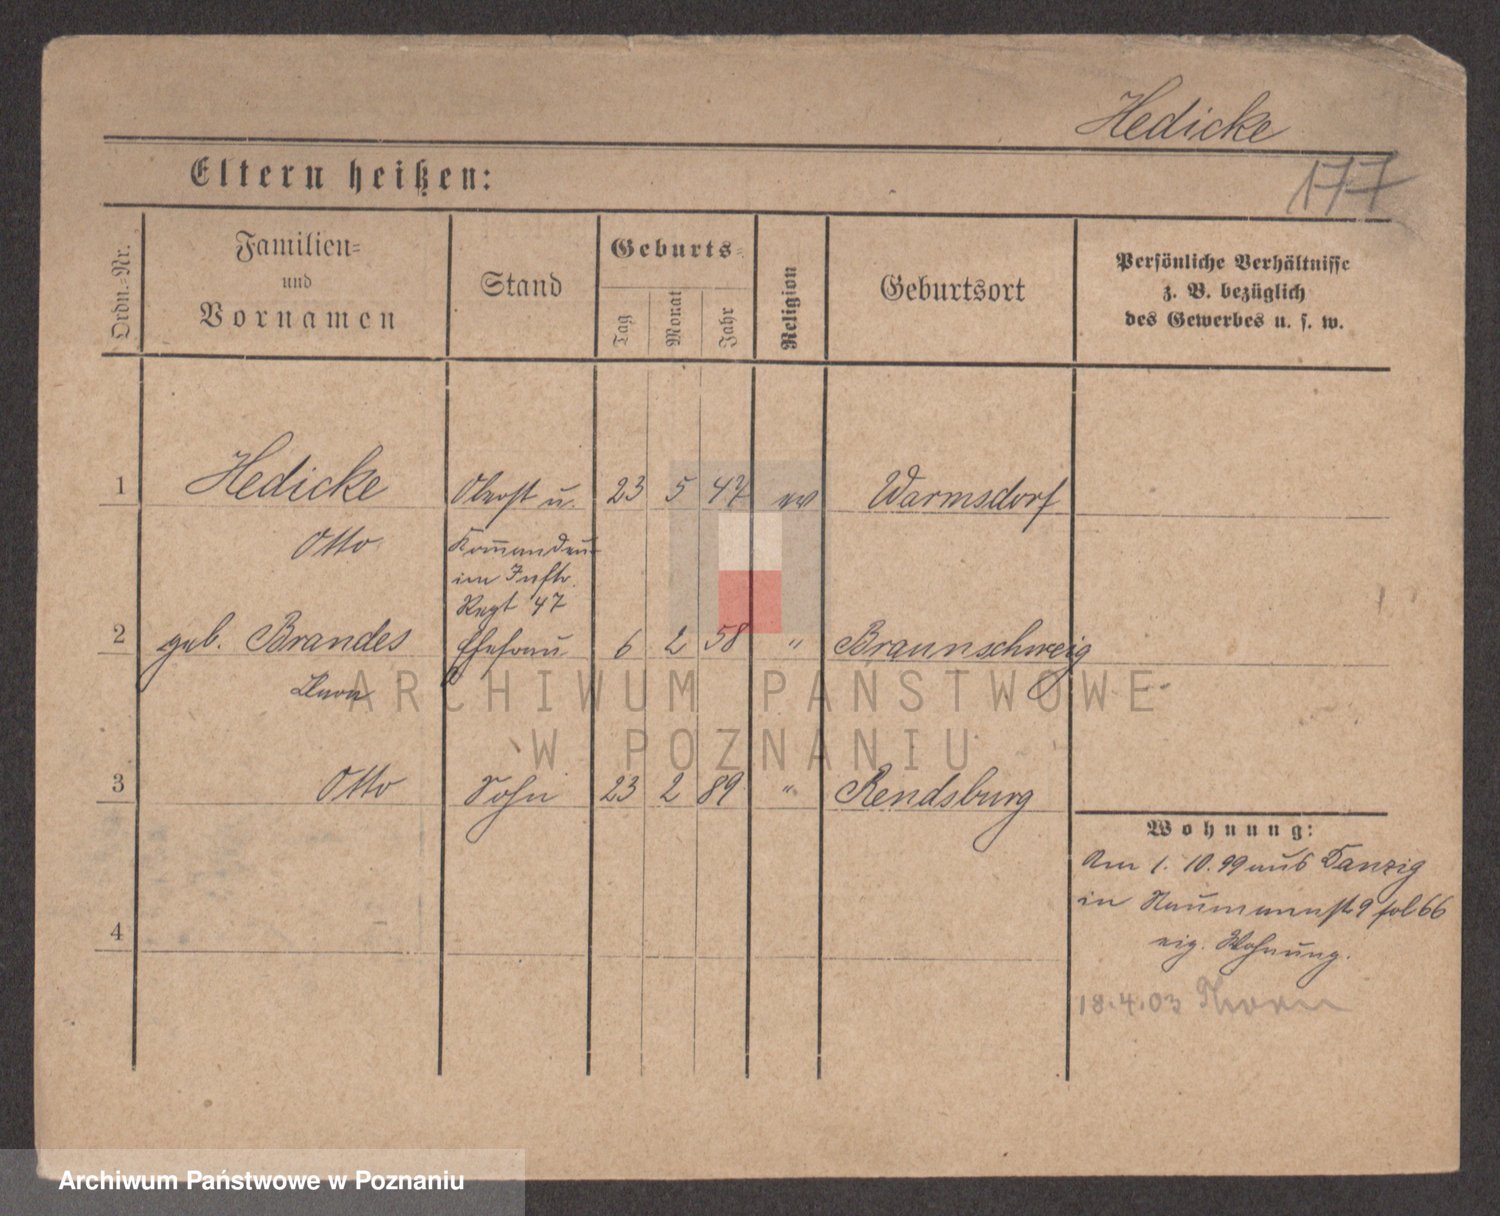 Hedicke
177
Eltern heißen:
Ordn.-Nr.
Familien-
und
Vornamen
Stand
Geburts-
Tag
Monat
Jahr
Religion
Geburtsort
Persönliche Verhältnisse
z. B. bezüglich
des Gewerbes u. s. w.
1 Hedicke Oberst u. 23 5 47 ev Warmsdorf
Otto Kom̅andeur
im Inftr.
Regt 47
2 geb. Brandes Ehefrau 6 2 58 " Braunschweig
3 Otto Sohn 23 2 89 " Rendsburg
Wohnung:
Am 1. 10. 99 aus Danzig
in Naumannst 9 fol 66
eig. Wohnung.
4
18.4.03 Thorn
ARCHIWUM PAŃSTWOWE
W POZNANIU
Archiwum Państwowe w Poznaniu